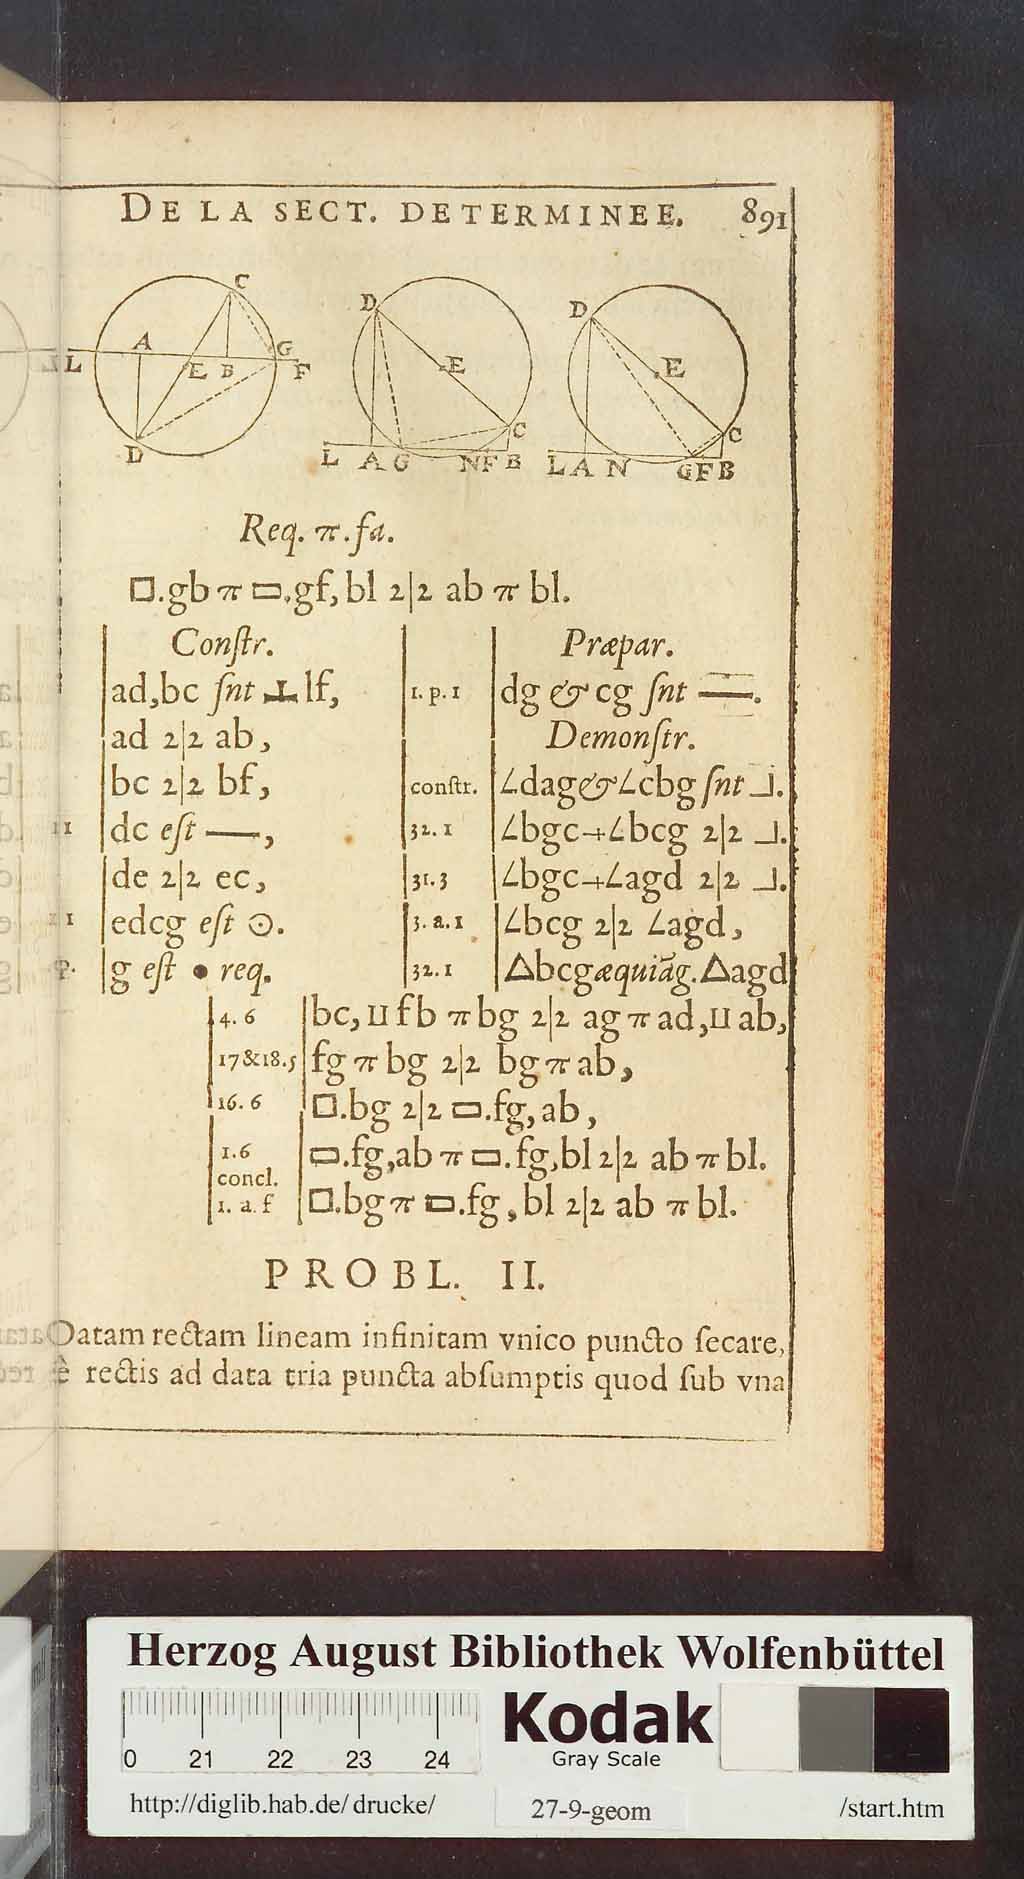 DE LA SECT. DETERMINEE. 891
C
A
G
L E B F
D
D
E
C
L A G N F B
D
E
C
L A N G F B
Req. π. fa.
□.gb π ▭.gf, bl 2|2 ab π bl.
Conſtr.
ad, bc ſnt ⊥ lf,
ad 2|2 ab,
bc 2|2 bf,
11 dc eſt —,
de 2|2 ec,
11 edcg eſt ⊙.
g eſt • req.
Præpar.
1. p. 1 dg & cg ſnt —.
Demonſtr.
conſtr. ∠dag & ∠cbg ſnt ⅃.
32. 1 ∠bgc + ∠bcg 2|2 ⅃.
31. 3 ∠bgc + ∠agd 2|2 ⅃.
3. a. 1 ∠bcg 2|2 ∠agd,
32. 1 △bcg æquiãg. △agd
4. 6 bc, ⊔ fb π bg 2|2 ag π ad, ⊔ ab,
17&18. 5 fg π bg 2|2 bg π ab,
16. 6 □.bg 2|2 ▭.fg, ab,
1. 6 ▭.fg, ab π ▭.fg, bl 2|2 ab π bl.
concl.
1. a. f □.bg π ▭.fg, bl 2|2 ab π bl.
PROBL. II.
Datam rectam lineam infinitam vnico puncto ſecare,
è rectis ad data tria puncta abſumptis quod ſub vna
Herzog August Bibliothek Wolfenbüttel
Kodak
Gray Scale
0 21 22 23 24
http://diglib.hab.de/drucke/ 27-9-geom /start.htm